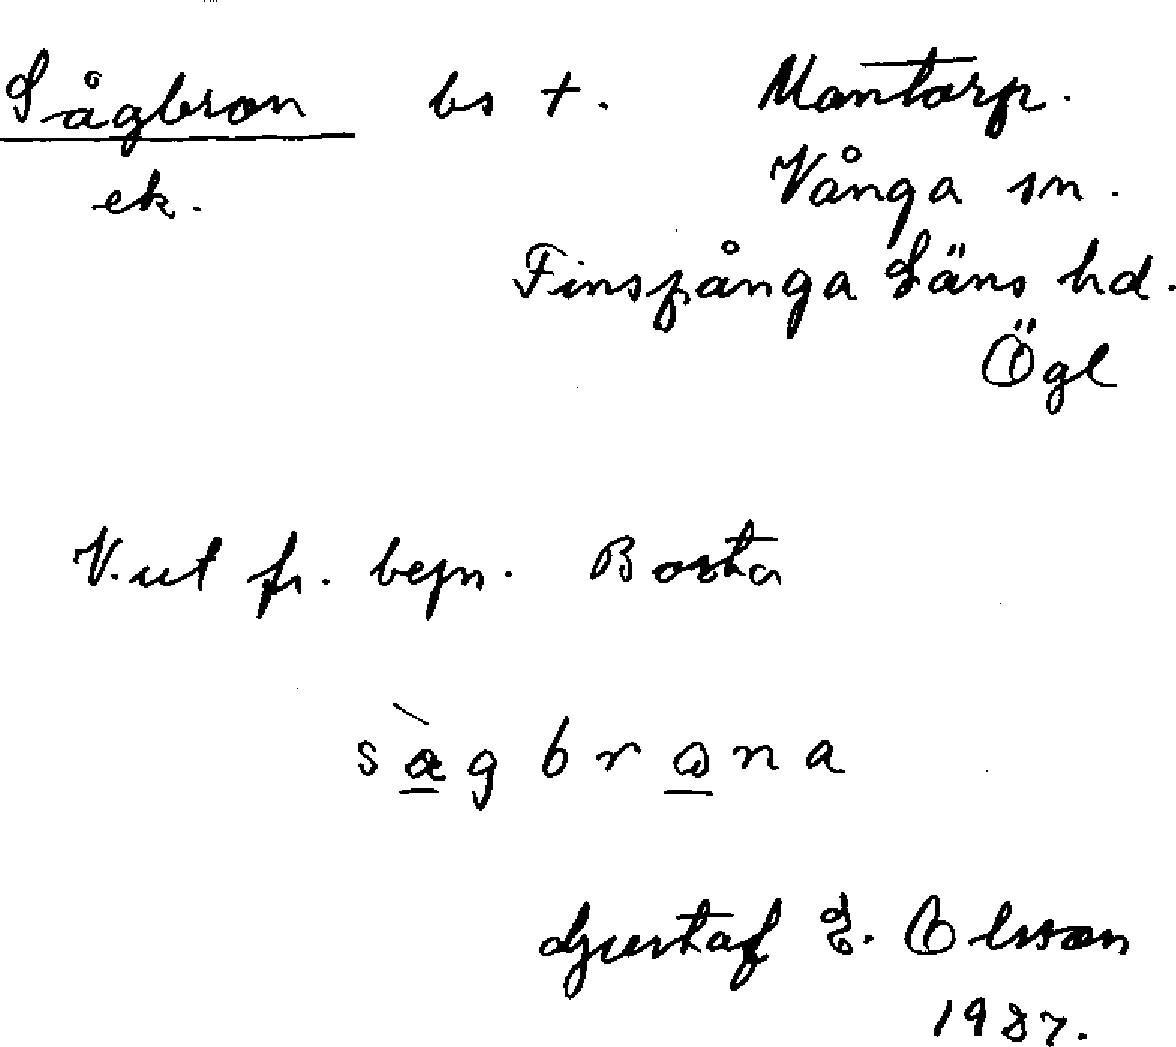 Sågbron bs +. Mantorp.
ek. Vånga sn.
Finspånga Läns hd.
Ögl
V. ut fr. bepn. Borta
sàgbrona
Gustaf E. Olsson
1937.